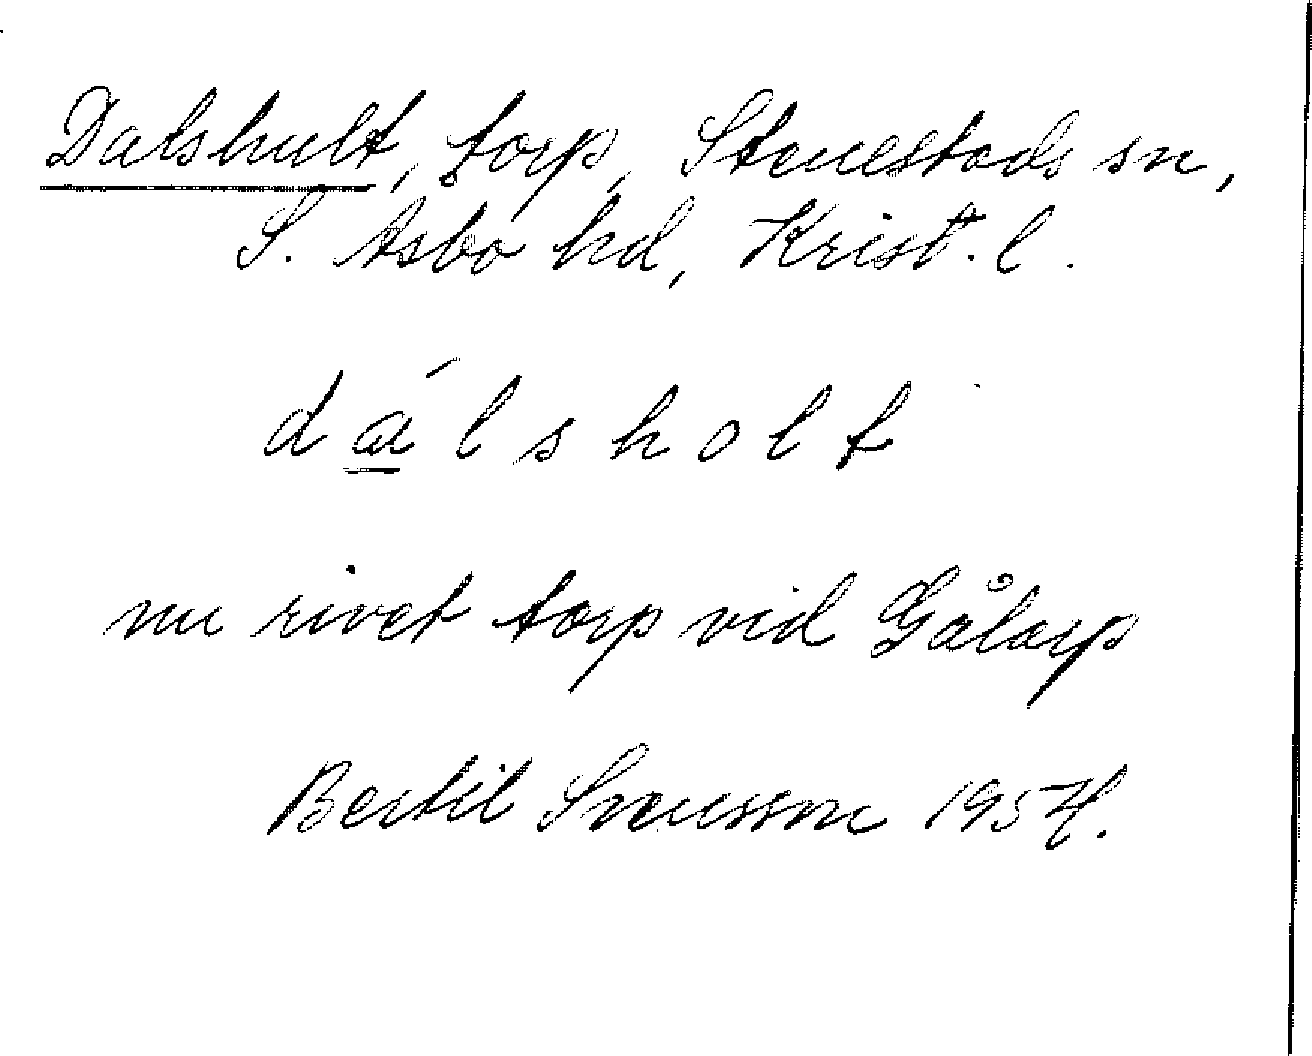 Dalshult, torp, Stenestads sn,
S. Åsbo hd, Krist. l.
dálsholt
nu rivet torp vid Gålarp
Bertil Svensson 1954.